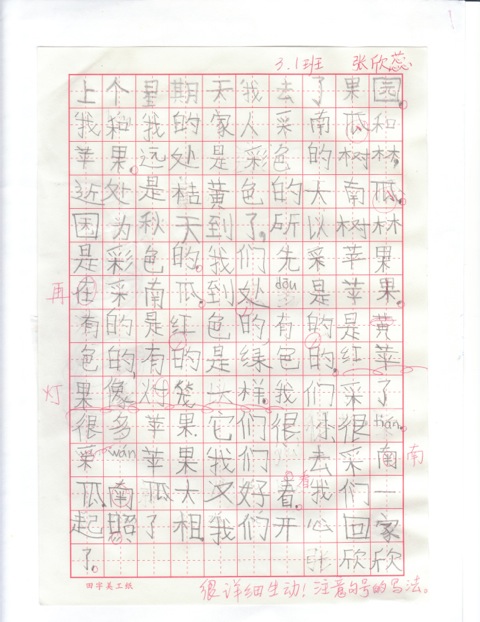 3.1班 张欣蕊
上个星期天我去了果园。
我和我的家人采南瓜和
苹果。远处是彩色的树林,
近处是桔黄色的大南瓜。
因为秋天到了,所以树林
是彩色的。我们先采苹果
再 在采南瓜。到处dōu是苹果。
有的是红色的有的是黄
色的,有的是绿色的。红苹
灯 果像灯笼一样。我们采了
很多苹果它们很小很tián.
采wán苹果我们去采南 南
看
瓜。南瓜大又好看。我们一
起照了相。我们开心回家
了。 欣欣
田字美工纸 很详细生动!注意句号的写法。